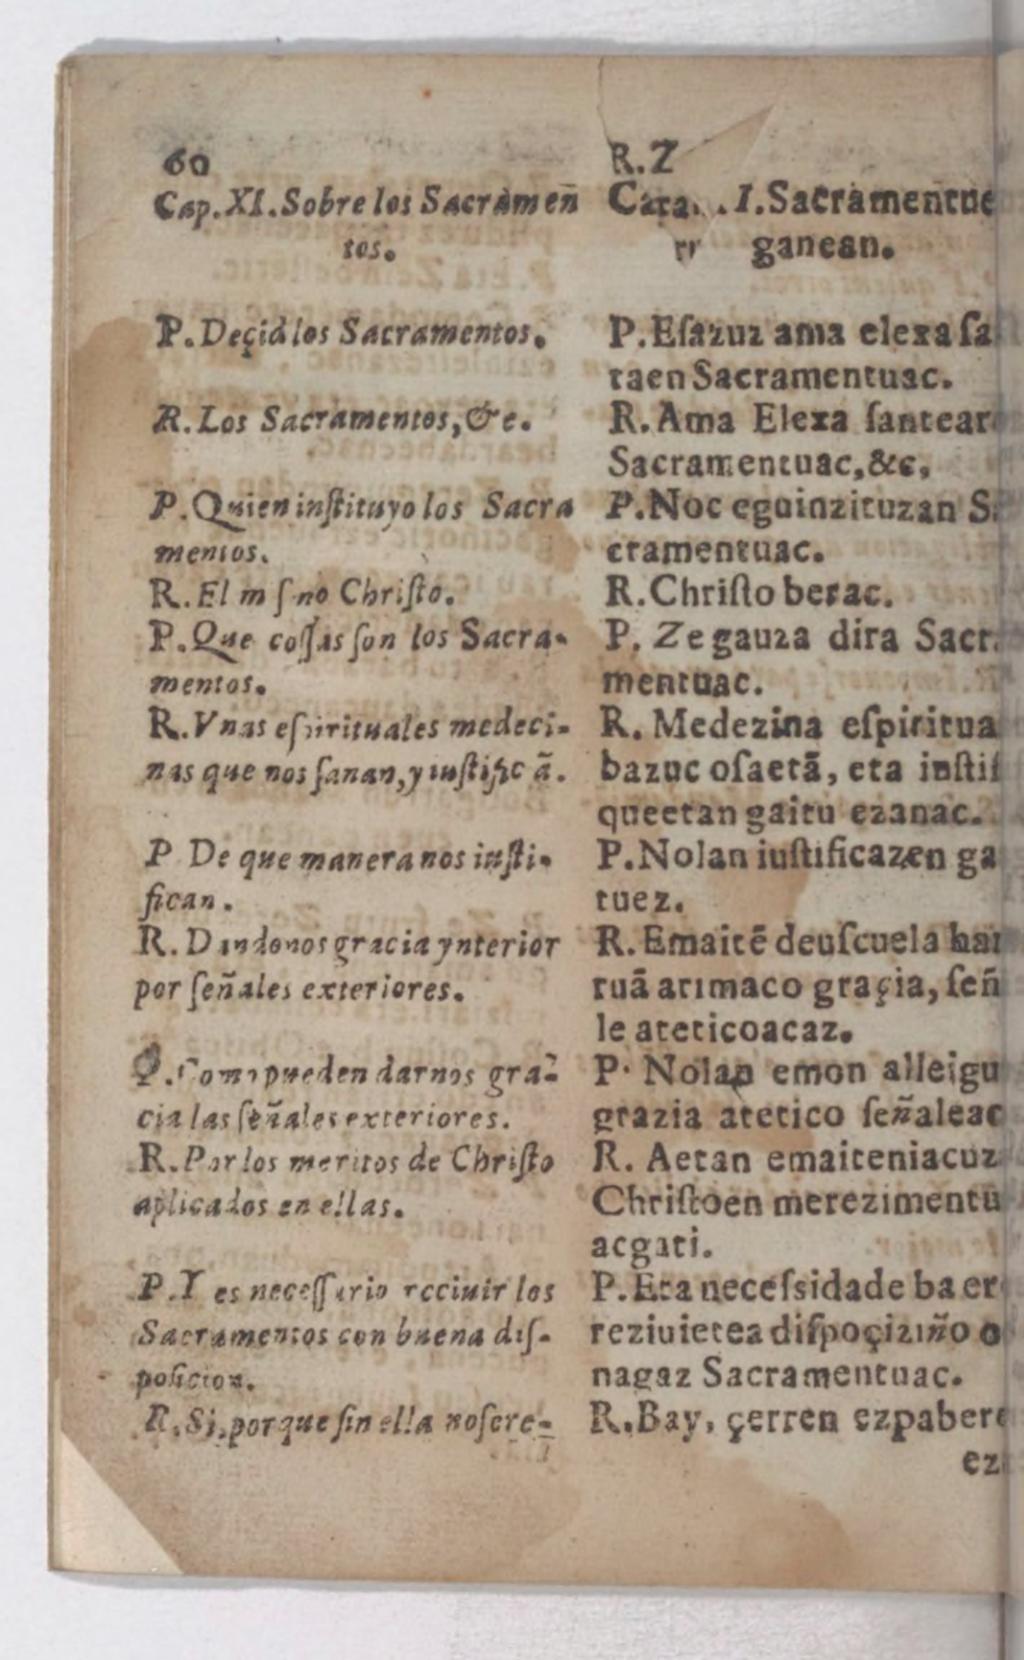 60
Cap.XI.Sobre los Sacramen̄
tos.
P.Deçid los Sacramentos.
R.Los Sacramentos,&c.
P.Quien instituyo los Sacra
mentos.
R.El m ſ no Chriſto.
P.Que coſſas ſon los Sacra-
mentos.
R.Vnas eſpirituales medeci-
nas que nos ſanan,y iuſtific ã.
P De que manera nos iuſti-
fican.
R.Dandonos gracia ynterior
por ſeñales exteriores.
P.Como pueden darnos gra-
cia las ſeñales exteriores.
R.Por los meritos de Chriſto
aplicados en ellas.
P.Y es neceſſario reciuir los
Sacramentos con buena diſ-
poſicion.
R.Si,porque ſin ella no ſere-
R.Z
I.Sacramentue
ganean.
P.Eſazuz ama elexa ſa
taen Sacramentuac.
R.Ama Elexa ſantear
Sacramentuac,&c,
P.Noc eguinzituzan S
cramentuac.
R.Chriſto berac.
P. Ze gauza dira Sacr
mentuac.
R. Medezina eſpiritua
bazuc oſaetã, eta iuſtif
queetan gaitu ezanac.
P.Nolan iuſtificazen ga
tuez.
R. Emaitē deuſcuela bar
ruã arimaco graçia, ſeñ
le ateticoacaz.
P. Nolan emon alleigu
grazia atetico ſeñaleac
R. Aetan emaiteniacuz
Chriſtoen merezimentu
acgati.
P.Eta neceſsidade ba er
reziuietea diſpoçiziño o
nagaz Sacramentuac.
R.Bay, çerren ezpabere
ez